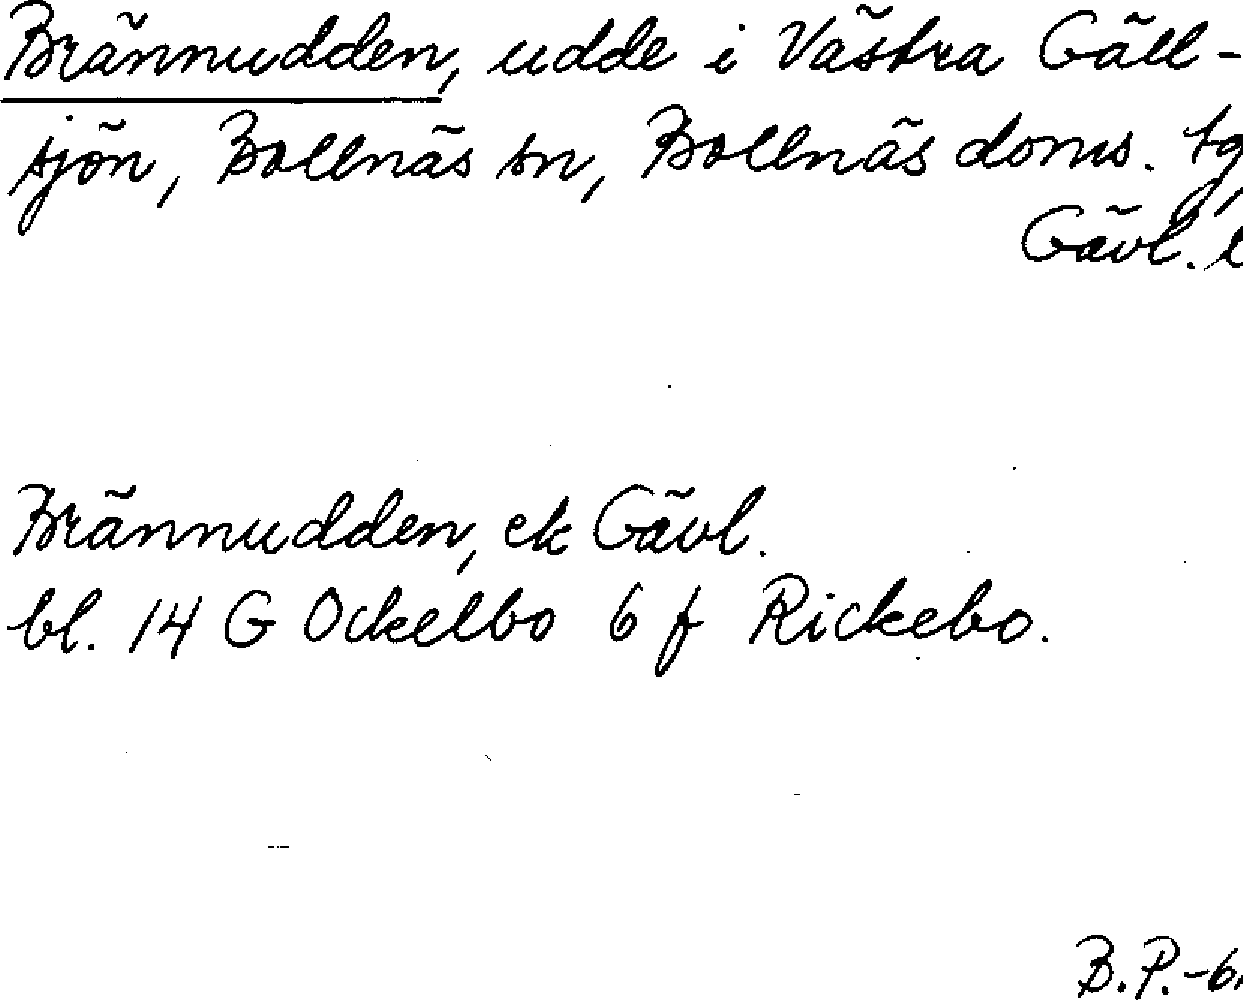 Brännudden, udde i Västra Gäll-
sjön, Bollnäs sn, Bollnäs doms. tg,
Gävl. l
Brännudden, ek Gävl.
bl. 14 G Ockelbo 6 f Rickebo.
B.P.-6